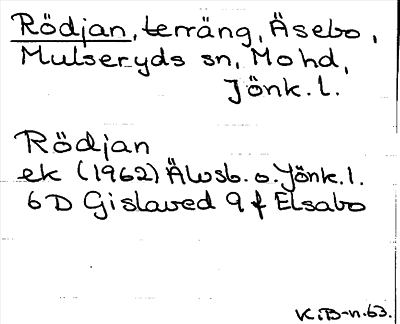 Rödjan, terräng, Äsebo,
Mulseryds sn, Mo hd,
Jönk. l.
Rödjan
ek (1962) Älvsb. o. Jönk. l.
6D Gislaved 9 f Elsabo
K.B-n.63.